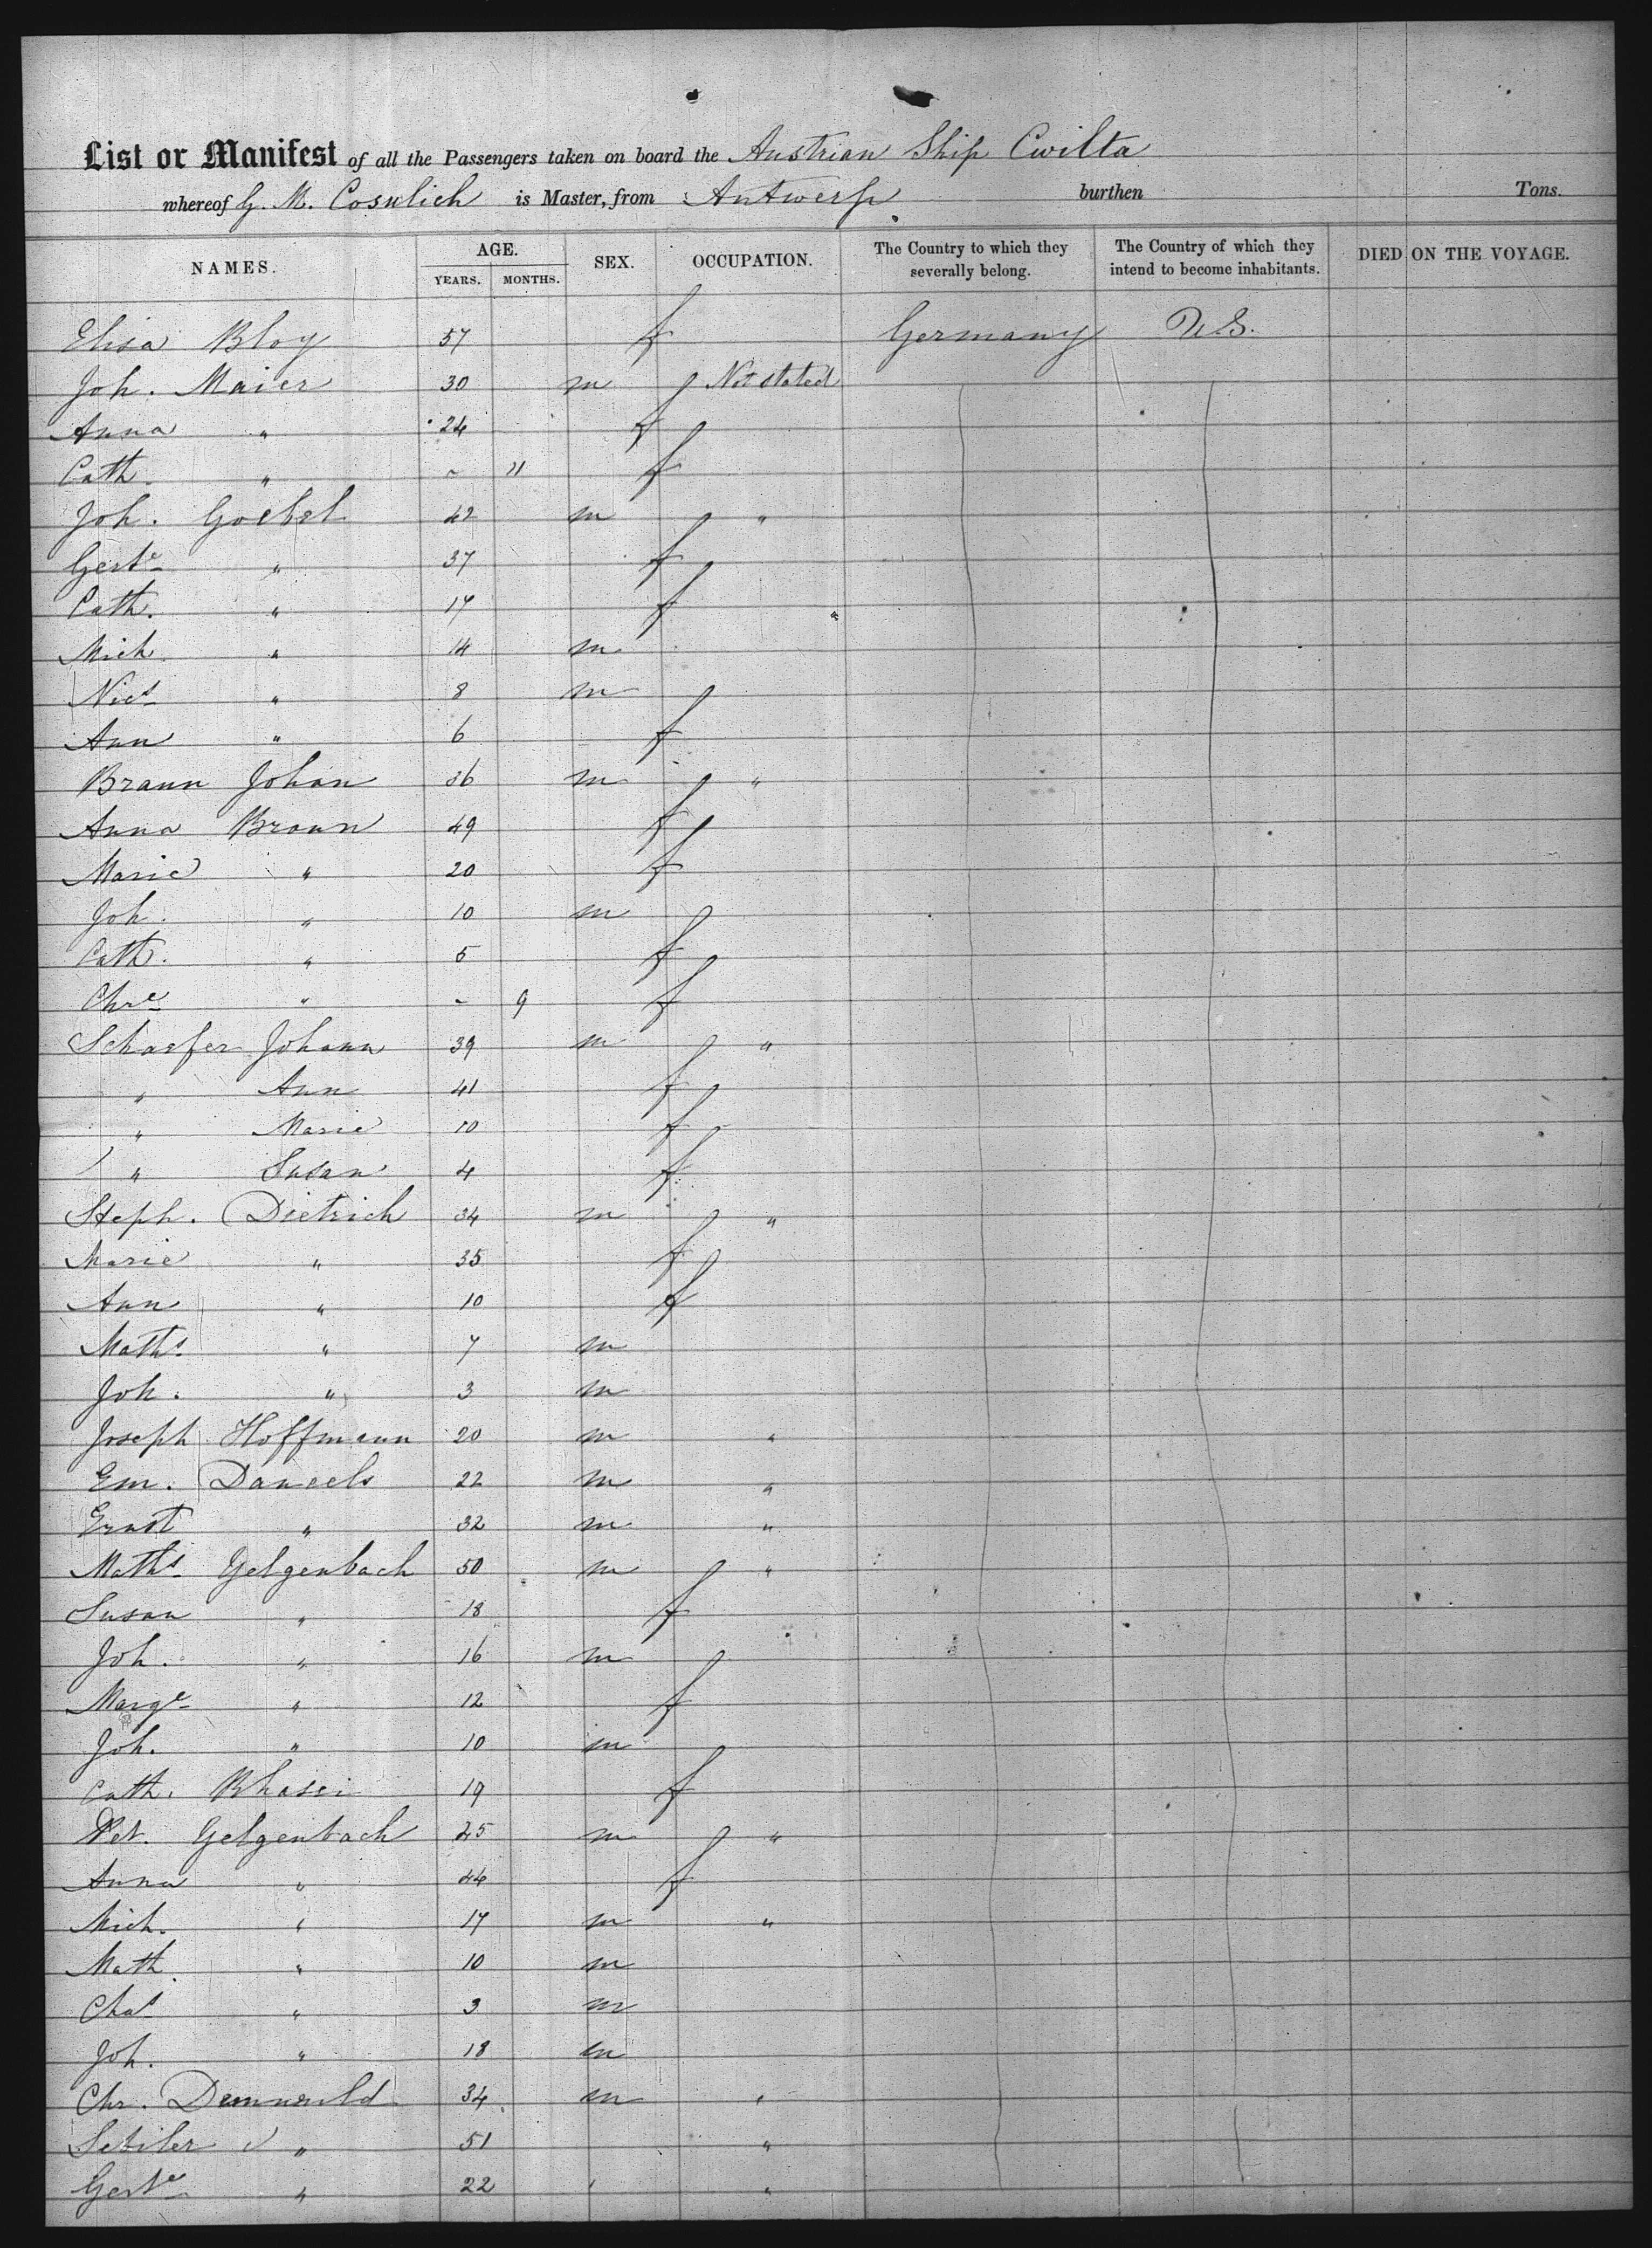 List or Manifest of all the Passengers taken on board the Austrian Ship Cwilta
whereof G. M. Cosulich is Master, from Antwerp burthen Tons.
NAMES. AGE. YEARS. MONTHS. SEX. OCCUPATION. The Country to which they severally belong. The Country of which they intend to become inhabitants. DIED ON THE VOYAGE.
Elisa Bloy 57 f Germany U.S.
Joh. Maier 30 m Not stated
Anna " 24 f
Cath. " - 11 f
Joh. Goebel 42 m "
Gerte " 37 f
Cath. " 17 f
Mich. " 14 m
Nics " 8 m
Ann " 6 f
Braun Johan 36 m "
Anna Braun 49 f
Marie " 20 f
Joh. " 10 m
Cath. " 5 f
Chre " - 9 f
Schaefer Johann 39 m "
" Ann 41 f
" Marie 10 f
" Susan 4 f
Steph. Dietrich 34 m "
Marie " 35 f
Ann " 10 f
Maths " 7 m
Joh. " 3 m
Joseph Hoffmann 20 m "
Em. Daneels 22 m "
Ernst " 32 m "
Maths Gelgenbach 50 m "
Susan " 18 f
Joh. " 16 m
Marge " 12 f
Joh. " 10 m
Cath. 19 f
Pet. Gelgenbach 45 m "
Anna " 44 f
Mich. " 17 m "
Math. " 10 m
Chas " 3 m
Joh. " 18 m
Chr. 34 m "
" 51 "
Gerte " 22 "